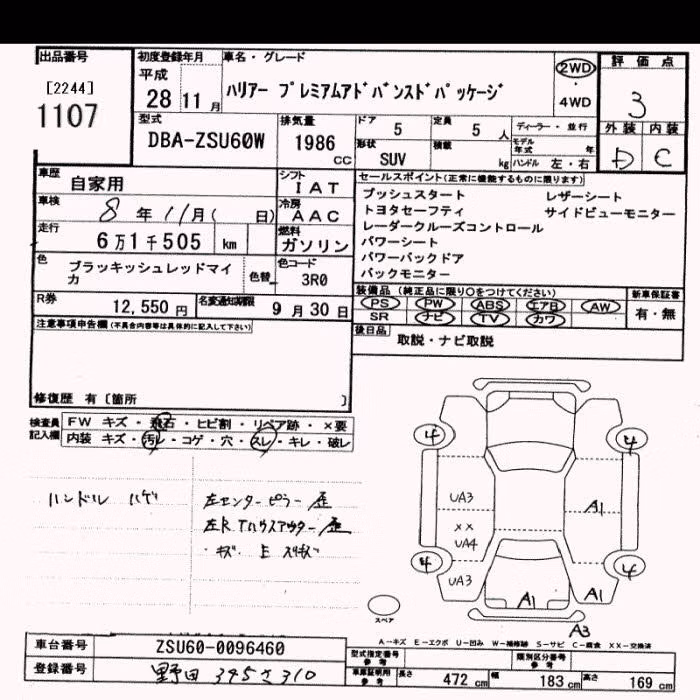 出品番号
[2244]
1107
初度登録年月
平成
28 11 月
車名・グレード
ハリアー プレミアムアドバンスドパッケージ
2WD
・
4WD
評価点
3
外装 内装
D C
型式
DBA-ZSU60W
排気量
1986
cc
ドア
5
定員
5 人
形状
SUV
積載
kg
ディーラー・並行
モデル年式 年
ハンドル 左・右
車歴
自家用
シフト
IAT
車検
8 年 11月( 日)
冷房
AAC
走行
6万1千505 km
燃料
ガソリン
色
ブラッキッシュレッドマイカ
色替
色コード
3R0
R券
12,550 円
名変通知期限
9月30日
セールスポイント(正常に機能するものに限ります)
プッシュスタート レザーシート
トヨタセーフティ サイドビューモニター
レーダークルーズコントロール
パワーシート
パワーバックドア
バックモニター
装備品(純正品に限り○をつけてください)
PS PW ABS エアB AW
SR ナビ TV カワ
新車保証書
有・無
後日品
取説・ナビ取説
注意事項申告欄(不具合内容等は具体的に記入して下さい)
修復歴 有〔箇所 〕
検査員記入欄
FW キズ・飛石・ヒビ割・リペア跡・×要
内装 キズ・汚レ・コゲ・穴・スレ・キレ・破レ
ハンドル ハゲ
左センターピラー 歪
左R,Tハウスアウター 歪
4
4
UA3
XX
UA4
A1
4
4
UA3
A1
A1
A3
スペア
A-キズ E-エクボ U-凹み W-補修跡 S-サビ C-腐食 XX-交換済
車台番号
ZSU60-0096460
登録番号
野田 345 さ 310
型式指定番号
参考
類別区分番号
参考
車庫証明用
参考
長さ 472 cm
幅 183 cm
高さ 169 cm